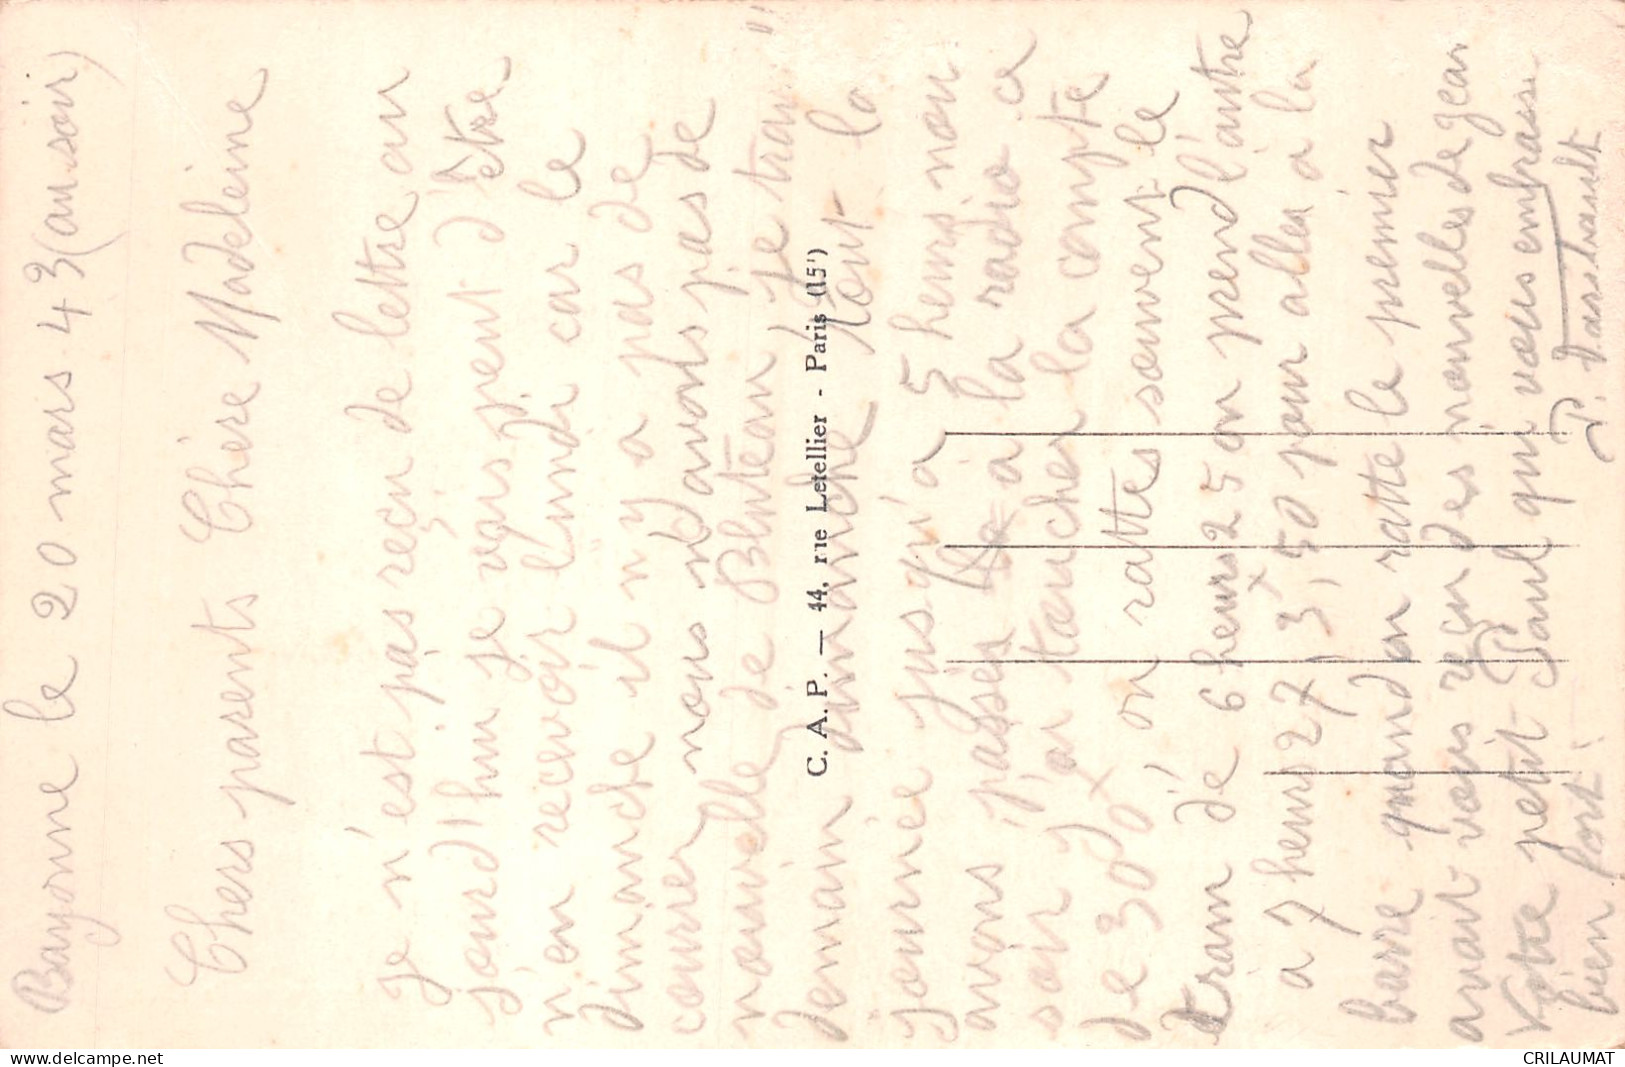 Bayonne le 20 mars 43 (au soir)
Chers parents Chère Madeleine
je n'est pas reçu de lettre au
jourd'hui je vais peut d'être
n'en recevoir lundi car le
dimanche il n'y a pas de
courrier nous n'avons pas de
nouvelle de Bluteau, je tra
demain dimanche tout la
journée jusqu'à 5 heures nou
avons passer à la radio ce
soir j'ai toucher la compte
de 30 on rattes souvent le
tram de 6 heures 25 on prend l'autre
à 7 heures 27, 3,50 pour aller à la
barre quand on ratte le premier
avait vous reçu des nouvelles de Jean
Votre petit Paul qui vous embrasse
bien fort!
P.
C. A. P. — 44, rue Letellier - Paris (15')
www.delcampe.net
CRILAUMAT